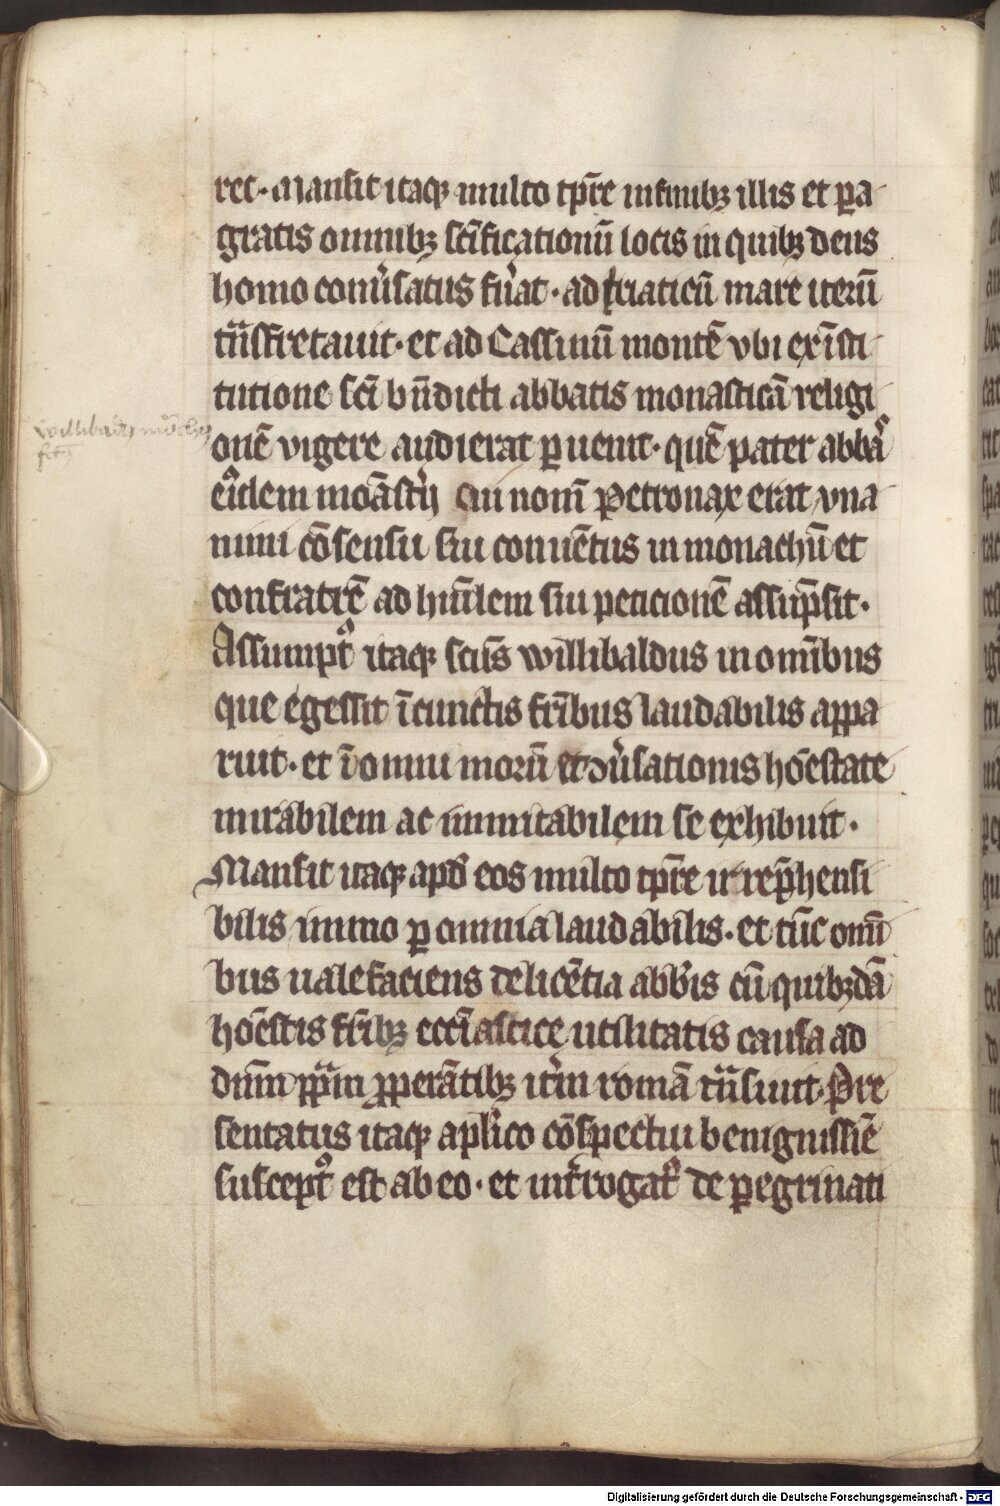 ret· Mansit itaqꝫ multo tꝑe in finibꝫ illis et ꝑa
gratis omnibꝫ sc̄ificationū locis in quibꝫ deus
homo conu̓satus fu̓at· adriaticū mare iterū
t̄nsfretauit· et ad Cassinū montē vbi ex īsti
tutione sc̄i bn̄dicti abbatis monasticā religi
onē vigere audierat ꝑuenit· quē pater abbāˢ
eiͦdem moāst̓ij Qui nom̄ Petronax erat vna
nimi cōsensu sui conuētus in monachū et
confratrē ad hūilem sui peticionē assūpsit·
Assumptꝰ itaqꝫ sc̄us willibaldus in omībus
que egessit ī cunctis fr̄ibus laudabilis appa
ruit· et ī omni morū et ↄu̓sationis hōestate
mirabilem ac inmitabilem se exhibuit·
Mansit itaqꝫ apd̓ eos multo tꝑe irrep̄hensi
bilis immo ꝑ omnia laudabilis· et tūc omī
bus ualefaciens de licētia abb̓is cū quibꝫdā
hōestis fr̄ibꝫ eccl̄iastice utilitatis causa ad
dn̄m pp̄am ꝓperātibꝫ it̓m romā t̄nsiuit· Pre
sentatus itaqꝫ apl̓ico cōspectui benignissīē
susceptꝰ est ab eo· et int̓rogatꝰ de ꝑegrinati